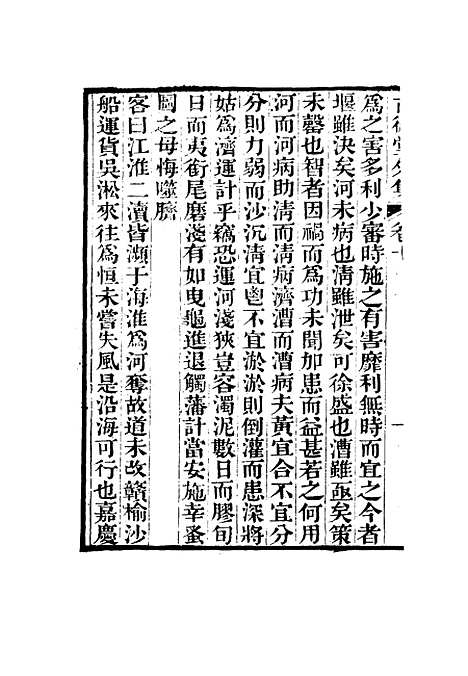 為之害多利少審時施之有害靡利無時而宜之今者
堰雖決矣河未病也清雖泄矣可徐盛也漕雖亟矣策
未罄也智者因禍而為功未聞加患而益甚若之何用
河而河病助清而清病濟漕而漕病夫黃宜合不宜分
分則力弱而沙沉清宜鬯不宜淤淤則倒灌而患深將
姑為濟運計乎竊恐運河淺狹豈容濁泥數日而膠旬
日而夷銜尾磨淺有如曳龜進退觸藩計當安施幸蚤
圖之毋悔噬臍
客曰江淮二瀆皆瀕于海淮為河奪故道未改贛榆沙
船運貨吳淞來往為恒未嘗失風是沿海可行也嘉慶